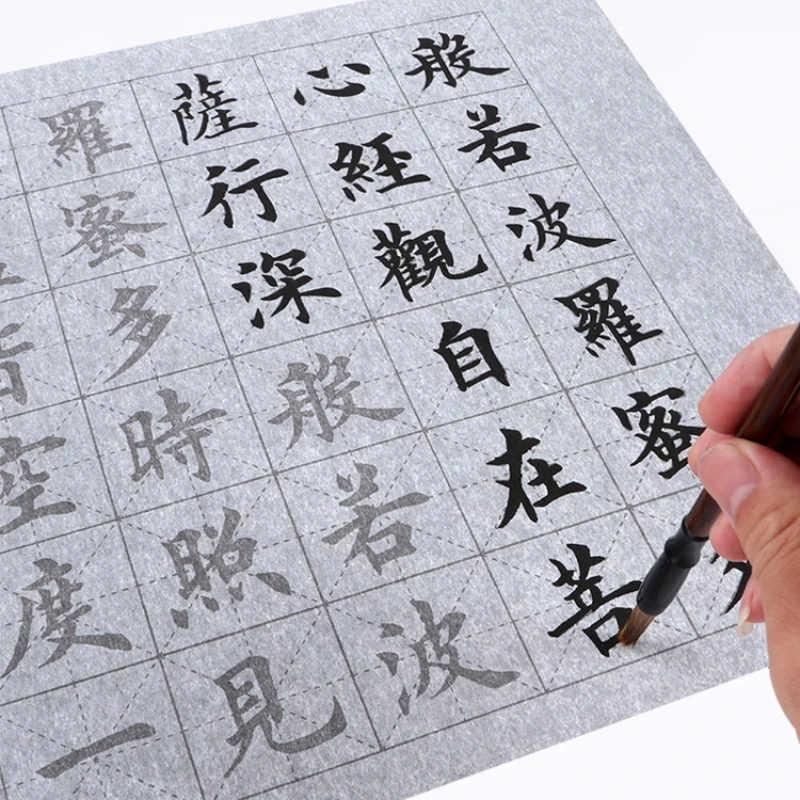 般若波羅蜜
心經觀自在菩
薩行深般若波
羅蜜多時照見
皆空度一